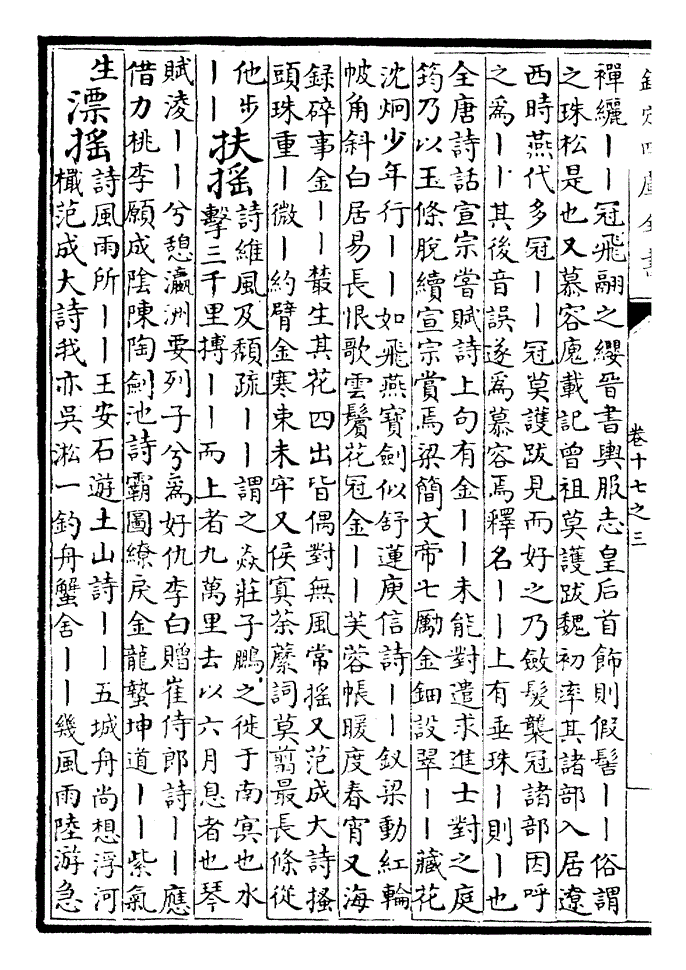 欽定四庫全書
卷十七之三
禪纚——冠飛翮之纓晉書輿服志皇后首飾則假髻——俗謂
之珠松是也又慕容廆載記曾祖莫護跋魏初率其諸部入居遼
西時燕代多冠——冠莫護跋見而好之乃斂髮襲冠諸部因呼
之爲——其後音誤遂爲慕容焉釋名——上有垂珠—則—也
全唐詩話宣宗嘗賦詩上句有金——未能對遣求進士對之庭
筠乃以玉條脫續宣宗賞焉梁簡文帝七勵金鈿設翠——藏花
沈烱少年行——如飛燕寶劍似舒蓮庾信詩——釵梁動紅輪
帔角斜白居易長恨歌雲鬢花冠金——芙蓉帳暖度春宵又海
録碎事金——叢生其花四出皆偶對無風常揺又范成大詩搔
頭珠重—微—約臂金寒束未牢又侯寘荼蘼詞莫翦最長條從
他步——
扶揺
詩維風及頽疏——謂之猋莊子鵬之徙于南冥也水
擊三千里摶——而上者九萬里去以六月息者也琴
賦淩——兮憩瀛洲要列子兮爲好仇李白贈崔侍郎詩——應
借力桃李願成陰陳陶劍池詩霸圖繚戾金龍蟄坤道——紫氣
生
漂揺
詩風雨所——王安石遊土山詩——五城舟尚想浮河
檝范成大詩我亦吳淞一釣舟蟹舍——幾風雨陸游急